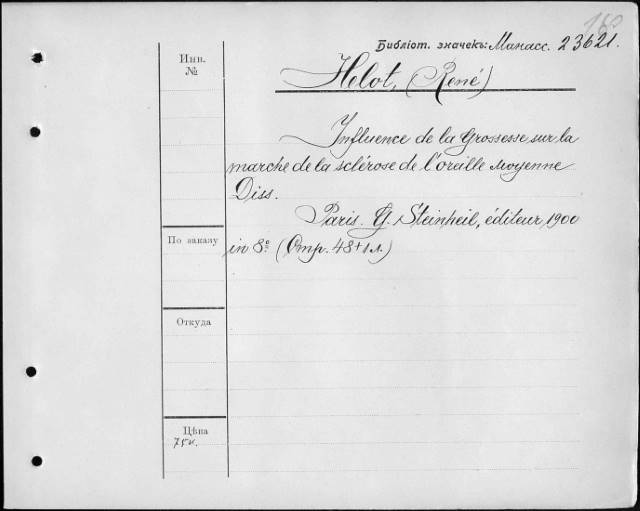 Библіот. значекъ: Манасс. 23621.
Инв.
№
Helot, (René)
Influence de la Grossesse sur la
marche de la sclérose de l'oreille moyenne
Diss.
Paris. G. Steinheil, éditeur, 1900
По заказу
in 8º (Стр. 48+1 л.)
Откуда
Цѣна
75к.